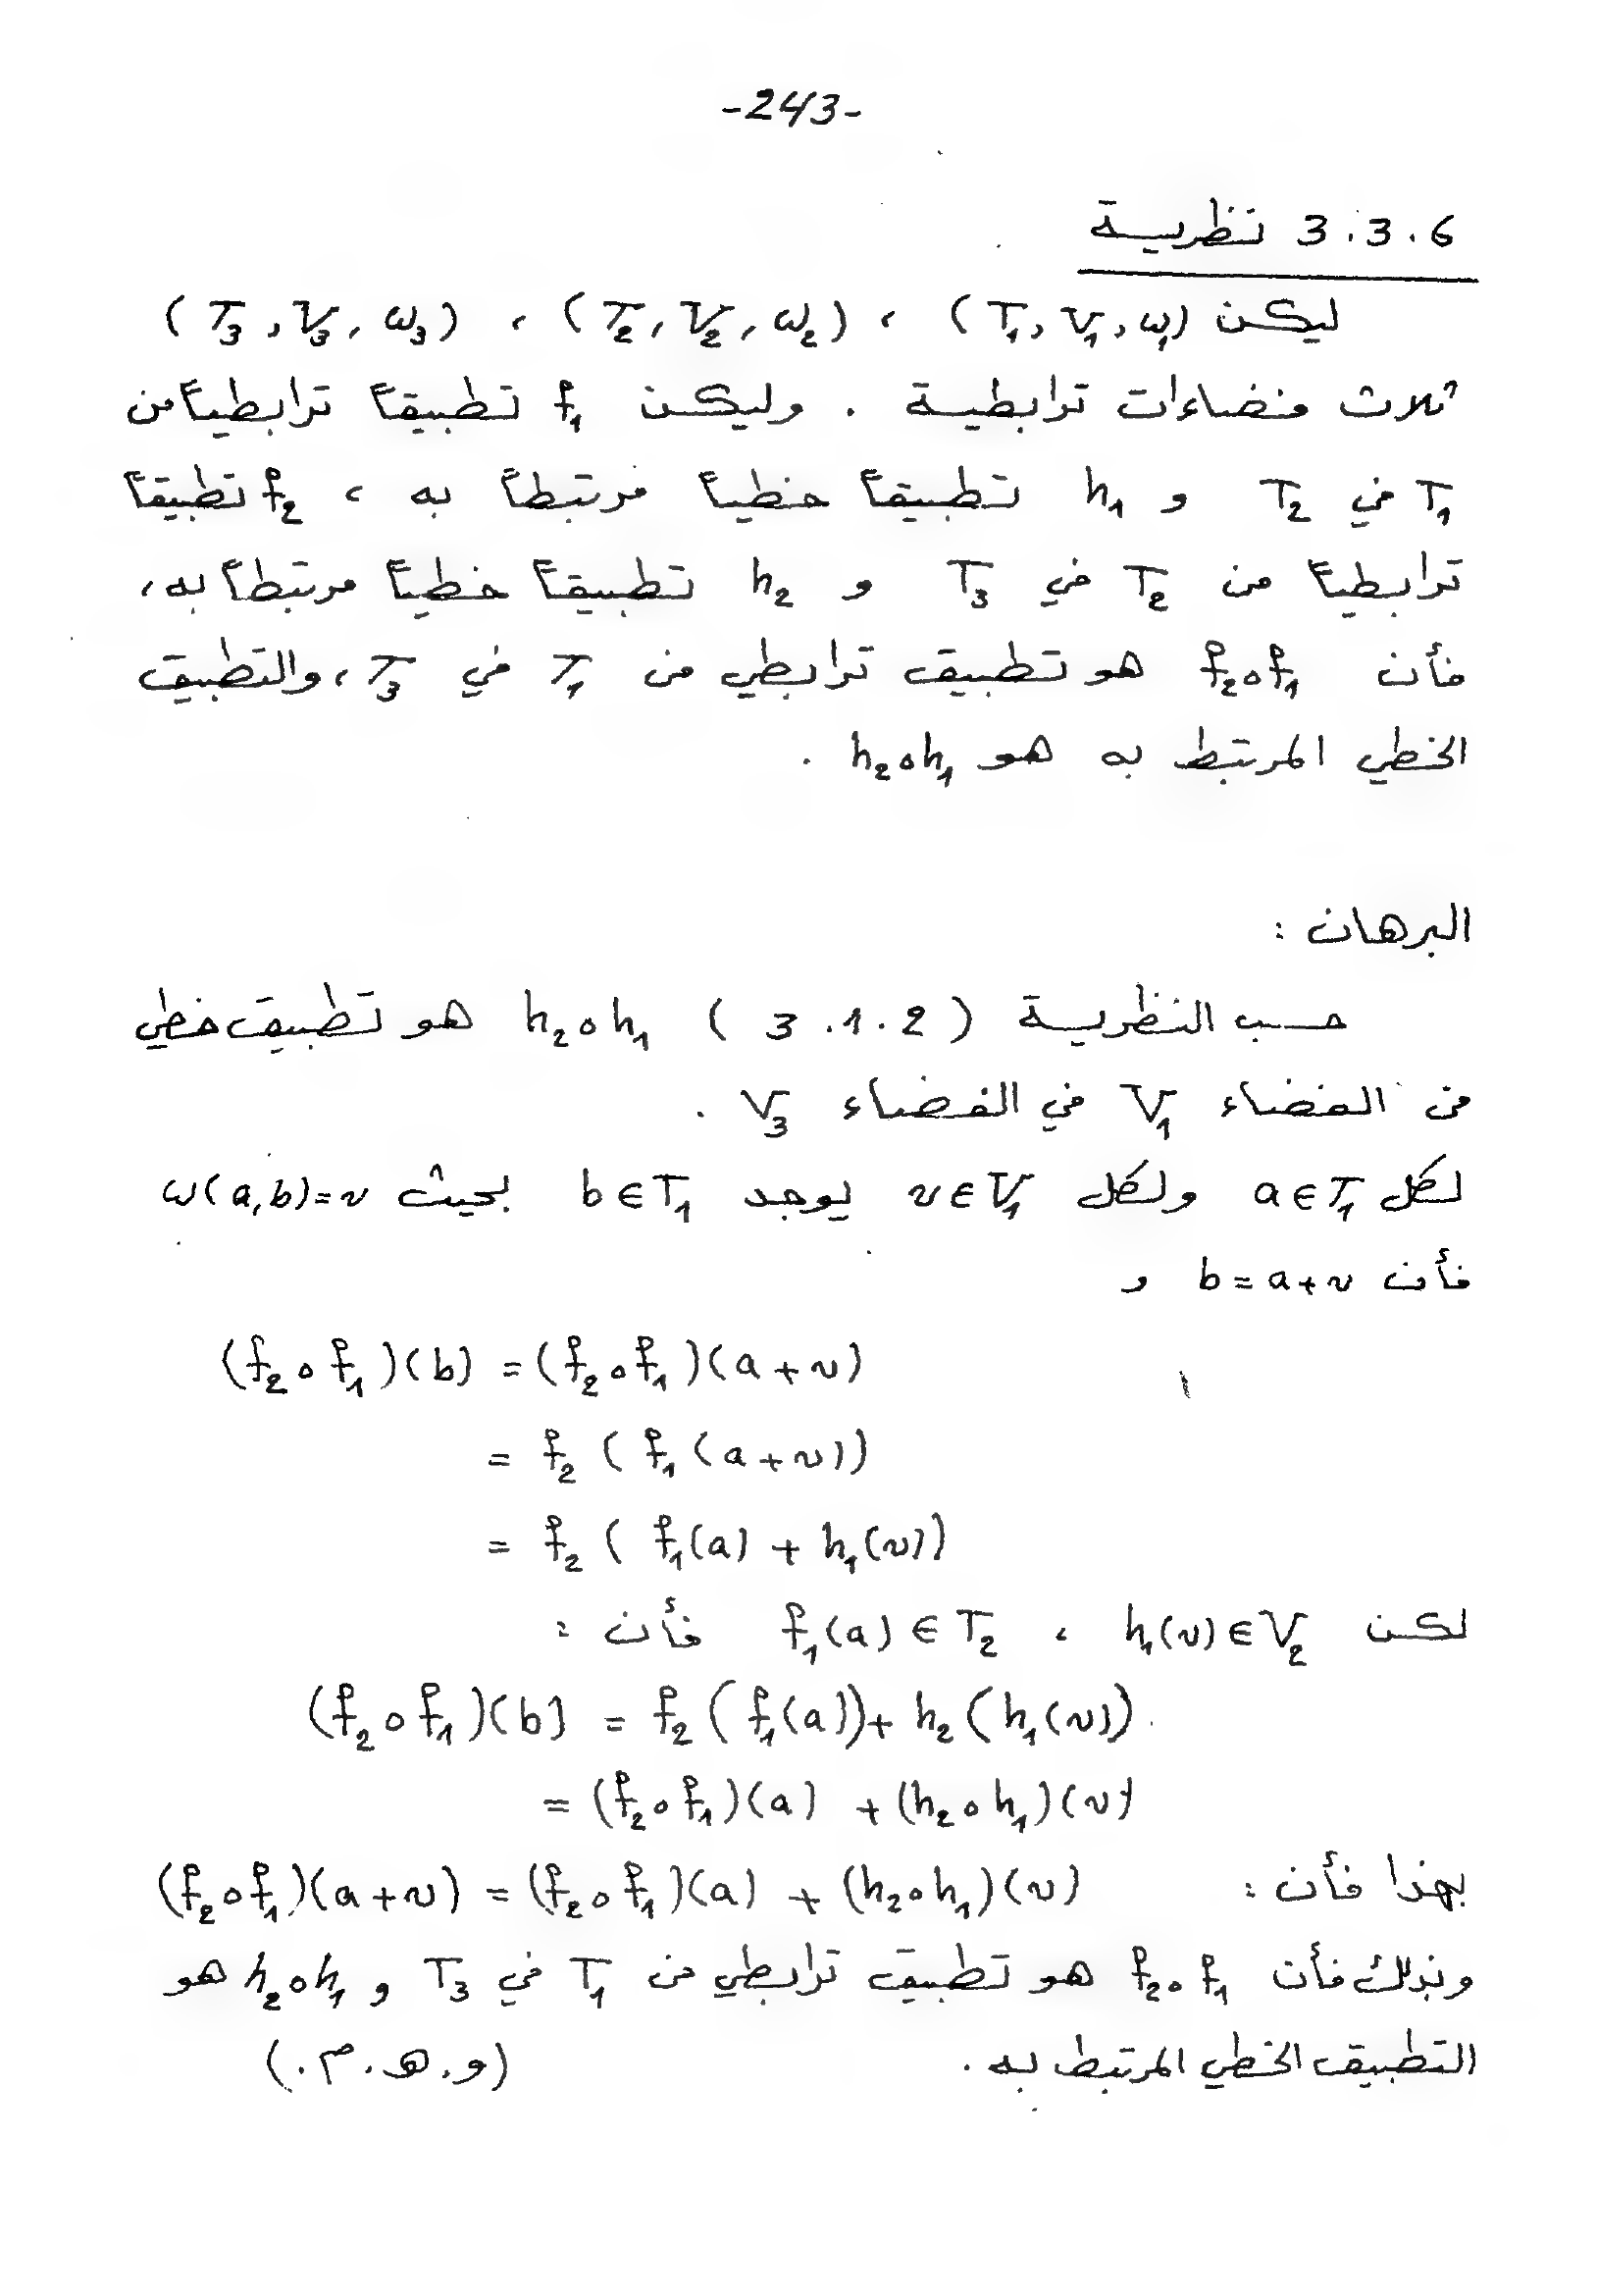 -243-
3.3.6 نظرية
ليكن (T₁, V₁, ω₁) ، (T₂, V₂, ω₂) ، (T₃, V₃, ω₃)
ثلاث فضاءات ترابطية . وليكن f₁ تطبيقاً ترابطياً من
T₁ في T₂ و h₁ تطبيقاً خطياً مرتبطاً به ، f₂ تطبيقاً
ترابطياً من T₂ في T₃ و h₂ تطبيقاً خطياً مرتبطاً به ،
فأن f₂∘f₁ هو تطبيق ترابطي من T₁ في T₃ ، والتطبيق
الخطي المرتبط به هو h₂∘h₁ .
البرهان :
حسب النظرية (3.1.2) h₂∘h₁ هو تطبيق خطي
من الفضاء V₁ في الفضاء V₃ .
لكل a∈T₁ ولكل v∈V₁ يوجد b∈T₁ بحيث ω(a,b)=v
فأن b=a+v و
(f₂∘f₁)(b) = (f₂∘f₁)(a+v)
= f₂ ( f₁ (a+v))
= f₂ ( f₁(a) + h₁(v))
لكن h₁(v)∈V₂ ، f₁(a)∈T₂ فأن :
(f₂∘f₁)(b) = f₂ (f₁(a)) + h₂ (h₁(v))
= (f₂∘f₁)(a) + (h₂∘h₁)(v)
بهذا فأن : (f₂∘f₁)(a+v) = (f₂∘f₁)(a) + (h₂∘h₁)(v)
وبذلك فأن f₂∘f₁ هو تطبيق ترابطي من T₁ في T₃ و h₂∘h₁ هو
التطبيق الخطي المرتبط به . (و.هـ.م.)